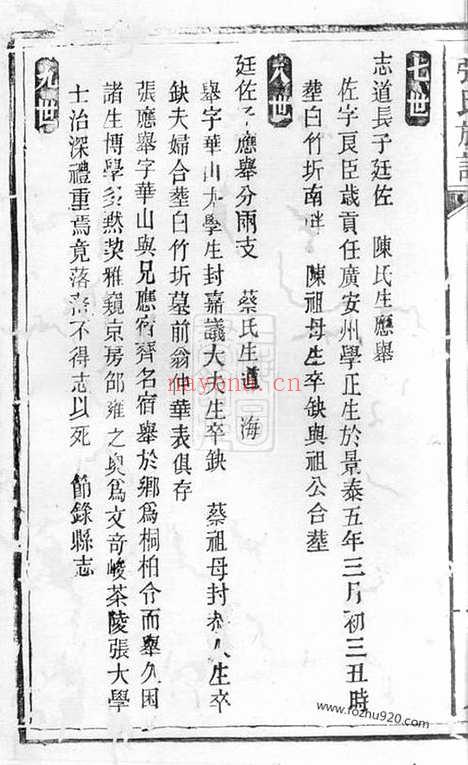 張氏族譜
七世
志道長子廷佐 陳氏生應舉
佐字良臣歲貢任廣安州學正生於景泰五年三月初三丑時
塟白竹圻南畔 陳祖母生卒缺與祖公合塟
八世
廷佐子應舉分兩支 蔡氏生道 海
舉字華山太學生封嘉議大夫生卒缺 蔡祖母封恭人生卒
缺夫婦合塟白竹圻墓前翁仲華表俱存
張應舉字華山與兄應宿齊名宿舉於鄉為桐柏令而舉久困
諸生博學多黙契雅窺京房邵雍之奥為文奇峻茶陵張大學
士治深禮重焉竟落落不得志以死 節錄縣志
九世
nayona.cn
www.fozhu920.com